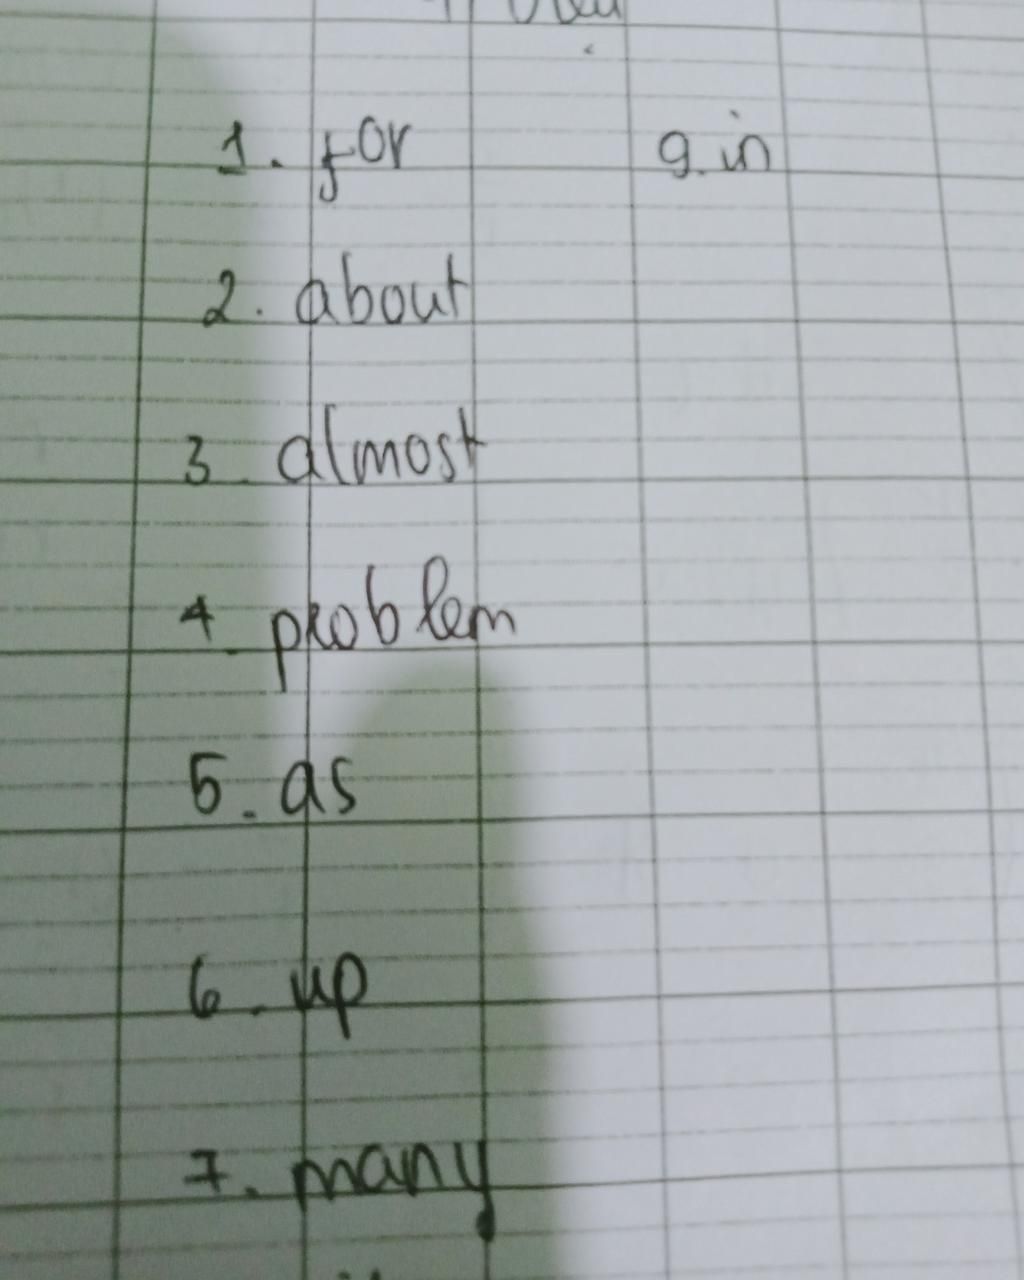 1. for
2. about
3. almost
4. problem
5. as
6. up
7. many
9. in